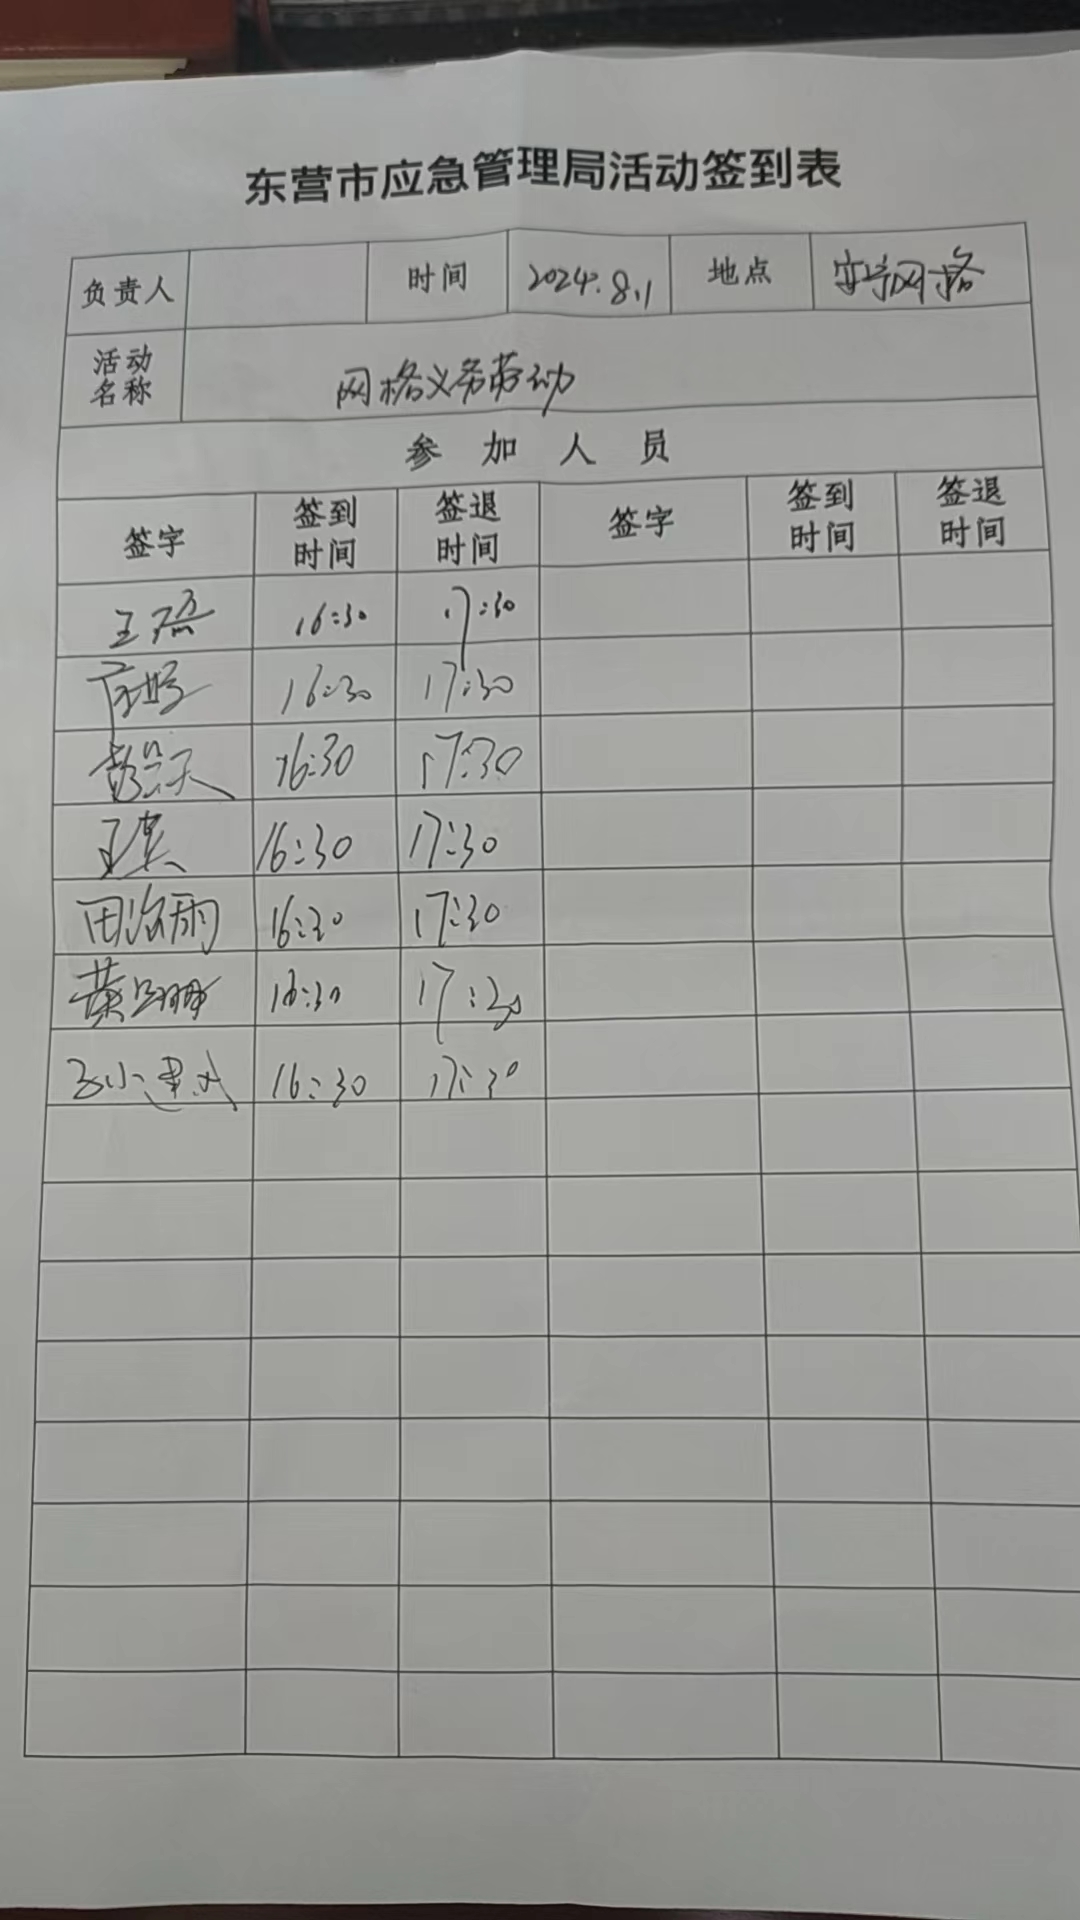 东营市应急管理局活动签到表
负责人 时间 2024.8.1 地点 安宁网格
活动名称 网格义务劳动
参加人员
签字 签到时间 签退时间 签字 签到时间 签退时间
王磊 16:30 17:30
16:30 17:30
16:30 17:30
16:30 17:30
田汝雨 16:30 17:30
黄 16:30 17:30
16:30 17:30